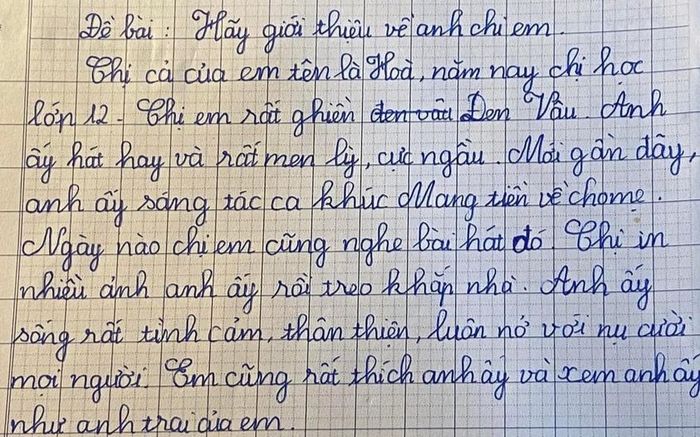 Đề bài: Hãy giới thiệu về anh chi em.
Chị cả của em tên là Hoà, năm nay chị học
lớp 12. Chị em rất ghiền đen vâu Đen Vâu. Anh
ấy hát hay và rất men lỳ, cực ngầu. Mới gần đây,
anh ấy sáng tác ca khúc Mang tiền về cho mẹ.
Ngày nào chị em cũng nghe bài hát đó. Chị in
nhiều ảnh anh ấy rồi treo khắp nhà. Anh ấy
sống rất tình cảm, thân thiện, luôn nở với nụ cười
mọi người. Em cũng rất thích anh ấy và xem anh ấy
như anh trai của em.